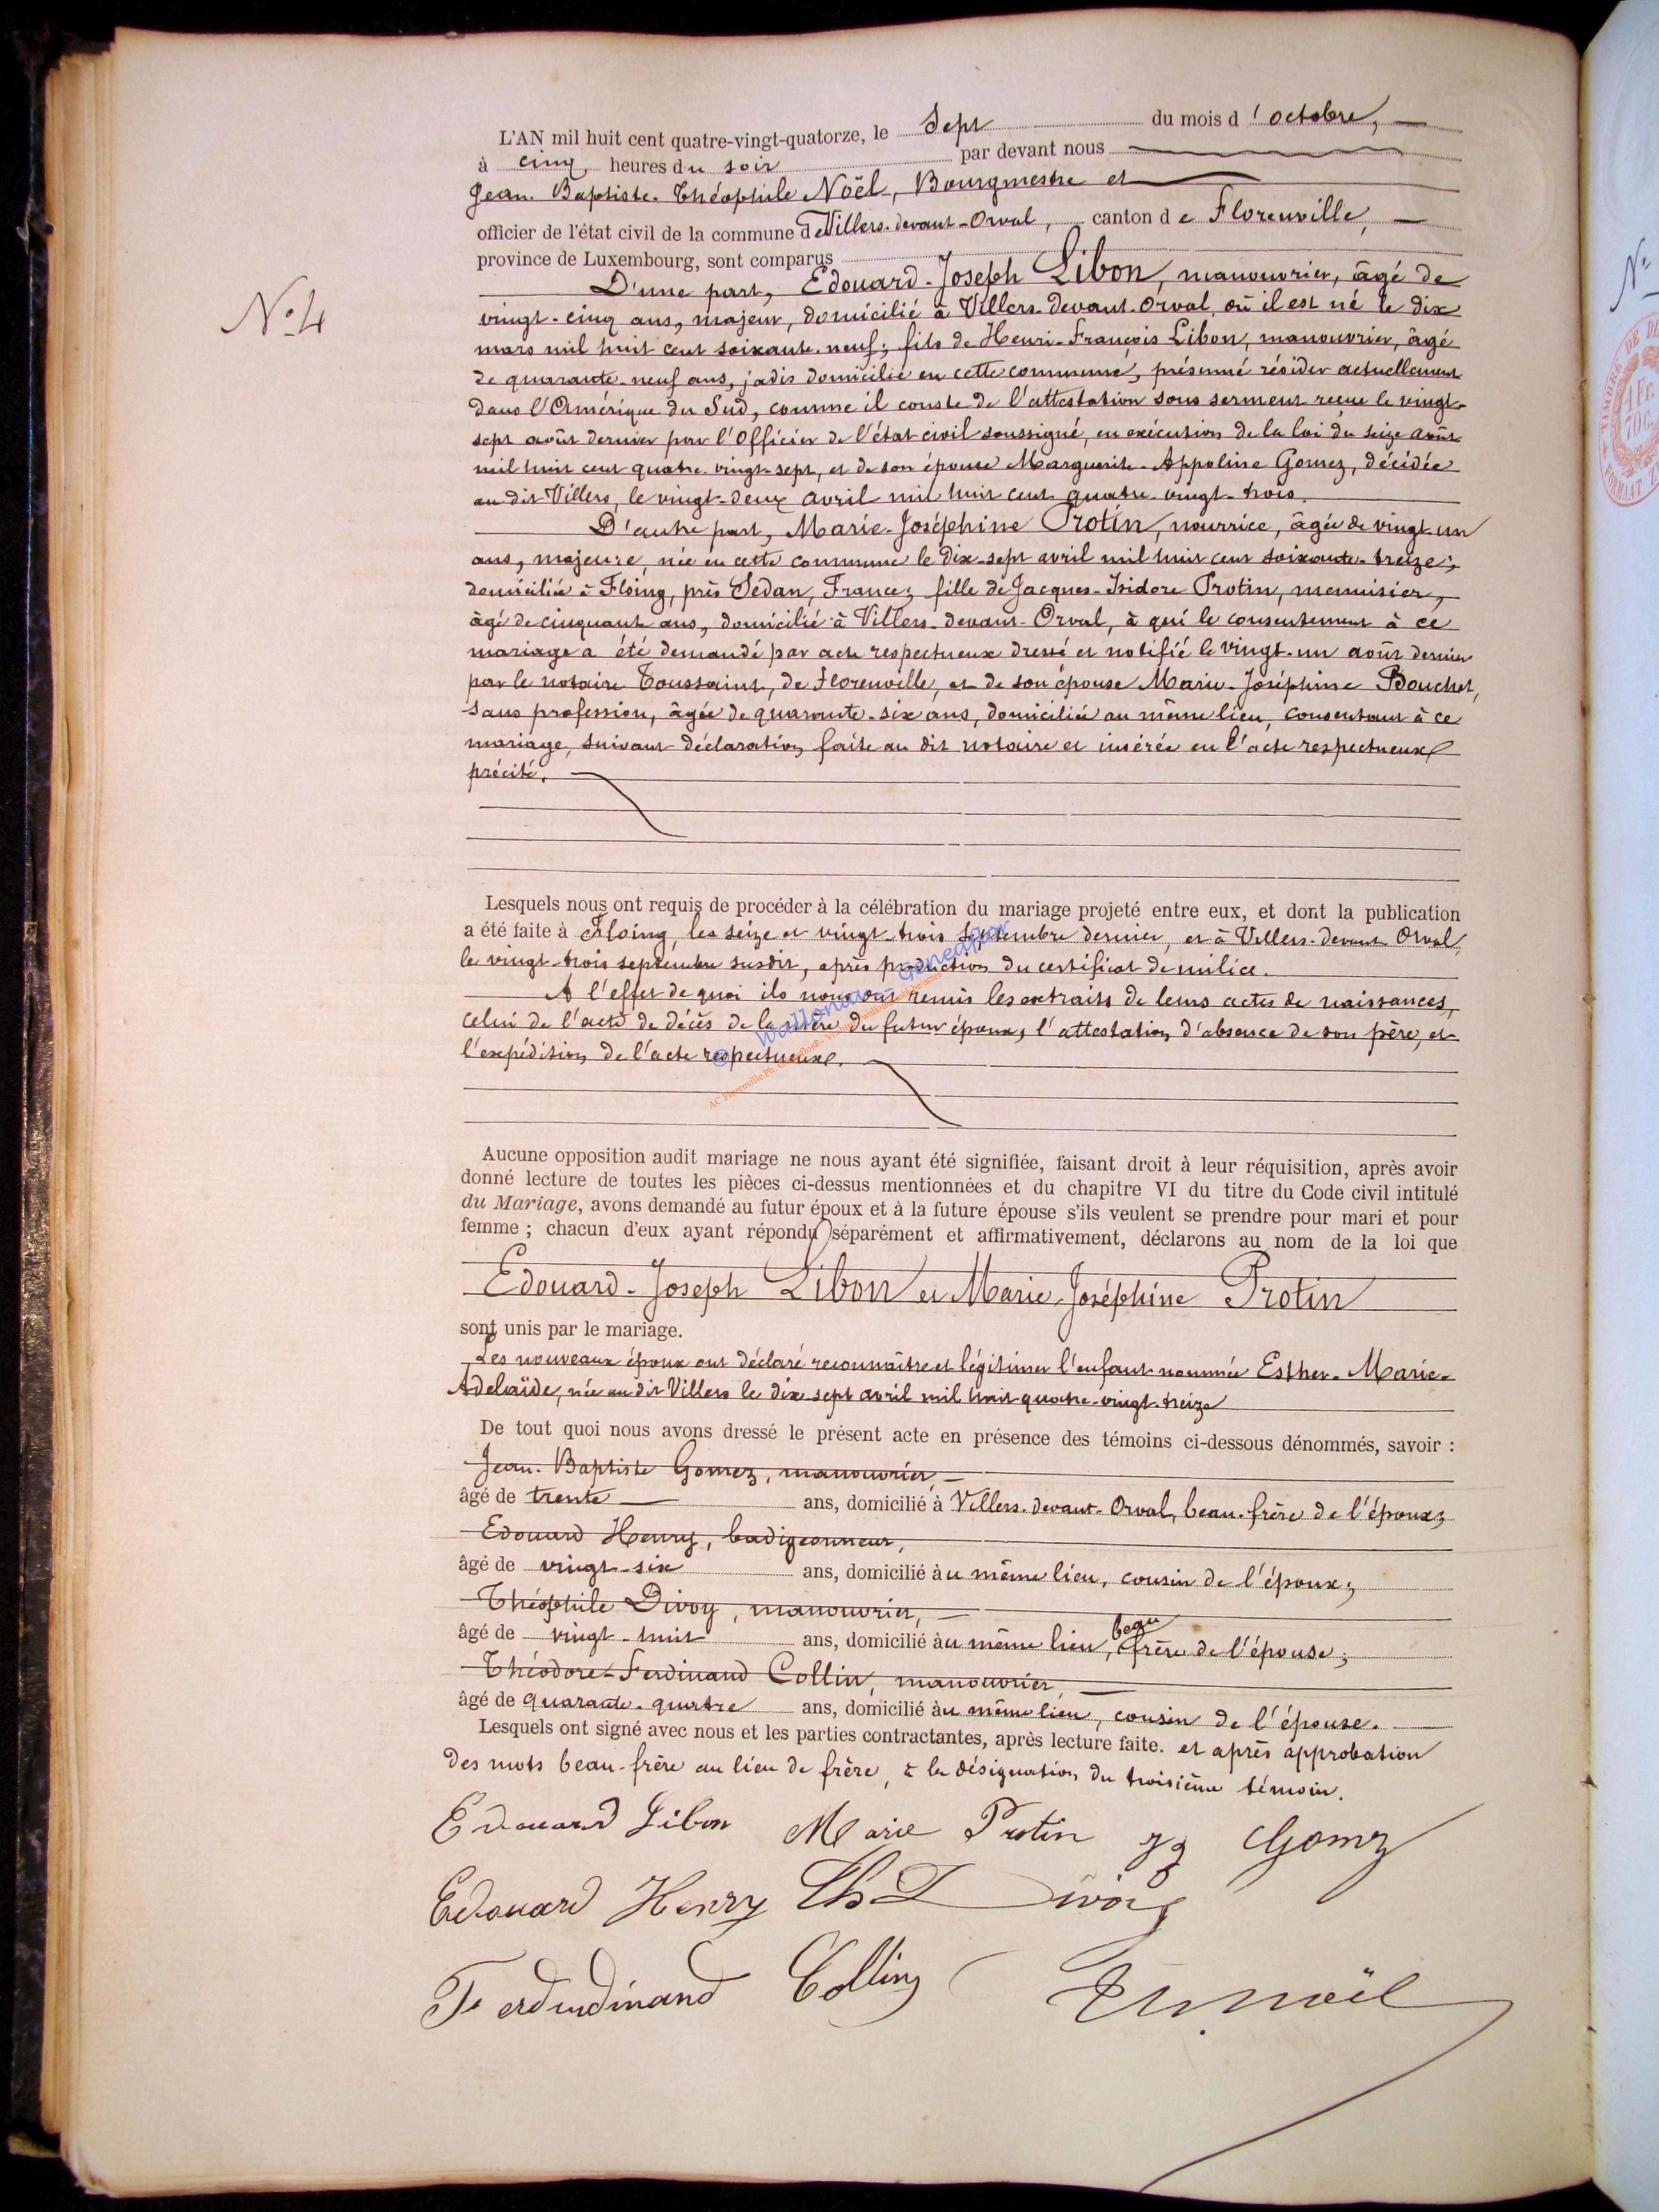 L'AN mil huit cent quatre-vingt-quatorze, le sept du mois d'octobre,
à cinq heures du soir par devant nous
Jean-Baptiste-Théophile Noël, Bourgmestre et
officier de l'état civil de la commune de Villers-devant-Orval, canton de Florenville,
province de Luxembourg, sont comparus
D'une part, Edouard-Joseph Libon, manouvrier, âgé de
vingt-cinq ans, majeur, domicilié à Villers-devant-Orval, où il est né le dix
mars mil huit cent soixante-neuf; fils de Henri-François Libon, manouvrier, âgé
de quarante-neuf ans, jadis domicilié en cette commune, présumé résider actuellement
dans l'Amérique du Sud, comme il conste de l'attestation sous serment reçue le vingt-
sept août dernier par l'Officier de l'état civil soussigné, en exécution de la loi du seize août
mil huit cent quatre-vingt-sept, et de son épouse Marguerite-Appoline Gomez, décédée
au dit Villers, le vingt-deux avril mil huit cent quatre-vingt-trois.
D'autre part, Marie-Joséphine Protin, nourrice, âgée de vingt-un
ans, majeure, née en cette commune le dix-sept avril mil huit cent soixante-treize;
domiciliée à Floing, près Sedan, France; fille de Jacques-Isidore Protin, menuisier,
âgé de cinquante ans, domicilié à Villers-devant-Orval, à qui le consentement à ce
mariage a été demandé par acte respectueux dressé et notifié le vingt-un août dernier
par le notaire Toussaint, de Florenville, et de son épouse Marie-Joséphine Bouchet,
sans profession, âgée de quarante-six ans, domiciliée au même lieu, consentant à ce
mariage, suivant déclaration faite au dit notaire et insérée en l'acte respectueux
précité.
Lesquels nous ont requis de procéder à la célébration du mariage projeté entre eux, et dont la publication
a été faite à Floing, les seize et vingt-trois septembre dernier, et à Villers-devant-Orval,
le vingt-trois septembre susdit, après production du certificat de milice.
A l'effet de quoi ils nous ont remis les extraits de leurs actes de naissances,
celui de l'acte de décès de la mère du futur époux, l'attestation d'absence de son père, et
l'expédition de l'acte respectueux.
Aucune opposition audit mariage ne nous ayant été signifiée, faisant droit à leur réquisition, après avoir
donné lecture de toutes les pièces ci-dessus mentionnées et du chapitre VI du titre du Code civil intitulé
du Mariage, avons demandé au futur époux et à la future épouse s'ils veulent se prendre pour mari et pour
femme ; chacun d'eux ayant répondu séparément et affirmativement, déclarons au nom de la loi que
Edouard-Joseph Libon et Marie-Joséphine Protin
sont unis par le mariage.
Les nouveaux époux ont déclaré reconnaître et légitimer l'enfant nommée Esther-Marie-
Adelaïde, née au dit Villers le dix-sept avril mil huit quatre-vingt-treize
De tout quoi nous avons dressé le présent acte en présence des témoins ci-dessous dénommés, savoir :
Jean-Baptiste Gomez, manouvrier,
âgé de trente ans, domicilié à Villers-devant-Orval, beau-frère de l'époux;
Edouard Henry, badigeonneur,
âgé de vingt-six ans, domicilié au même lieu, cousin de l'époux;
Théophile Divoy, manouvrier,
âgé de vingt-huit ans, domicilié au même lieu, beau frère de l'épouse;
Théodore-Ferdinand Collin, manouvrier,
âgé de quarante-quatre ans, domicilié au même lieu, cousin de l'épouse.
Lesquels ont signé avec nous et les parties contractantes, après lecture faite. et après approbation
des mots beau-frère au lieu de frère, à la désignation du troisième témoin.
Edouard Libon Marie Protin Gomz
Edouard Henry Th D Divoy
Ferdindinand Collin Th. Noël
N° 4
© Wallonia - Geneaflor
AC Florenville Ph.